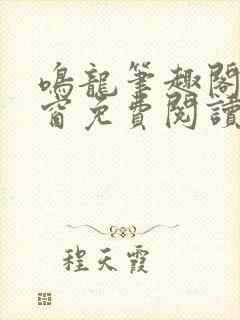 鳴龍筆趣閣
窗免費閱讀
程天霞